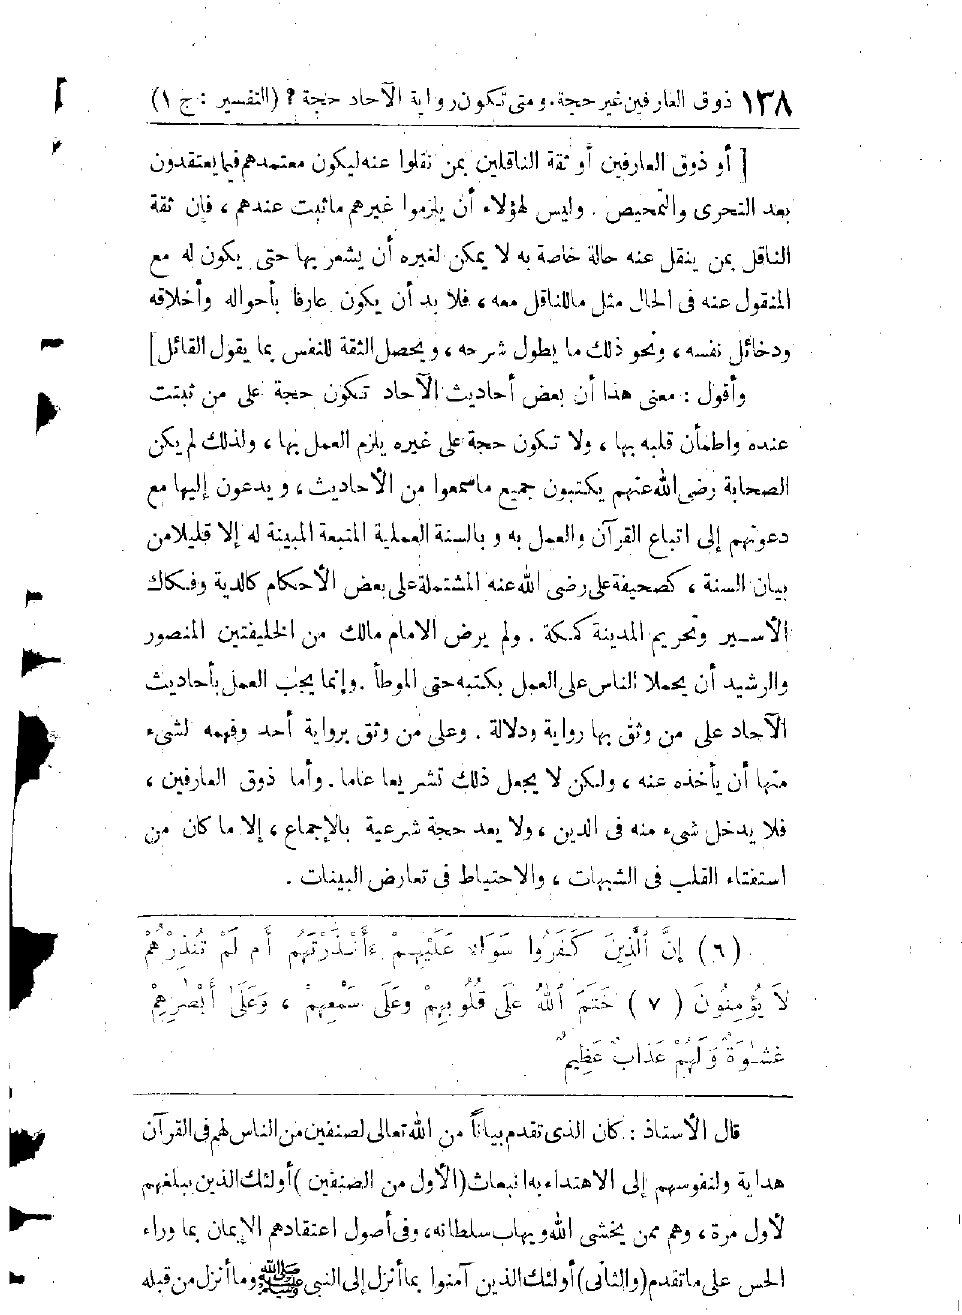 ١٣٨ ذوق العارفين غير حجة. ومتى تكون رواية الآحاد حجة ? (التفسير : ج ١)
[ أو ذوق العارفين أو ثقة الناقلين بمن نقلوا عنه ليكون معتمدهم فيما يعتقدون
بعد التحرى والتمحيص . وليس لهؤلاء أن يلزموا غيرهم ما ثبت عندهم ، فإن ثقة
الناقل بمن ينقل عنه حالة خاصة به لا يمكن لغيره أن يشعر بها حتى يكون له مع
المنقول عنه فى الحال مثل ما للناقل معه ، فلا بد أن يكون عارفا بأحواله وأخلاقه
ودخائل نفسه ، ونحو ذلك ما يطول شرحه ، ويحصل الثقة للنفس بما يقول القائل]
وأقول : معنى هذا أن بعض أحاديث الآحاد تكون حجة على من ثبتت
عنده واطمأن قلبه بها ، ولا تكون حجة على غيره يلزم العمل بها ، ولذلك لم يكن
الصحابة رضى الله عنهم يكتبون جميع ما سمعوا من الأحاديث ، ويدعون إليها مع
دعوتهم إلى اتباع القرآن والعمل به وبالسنة العملية المتبعة المبينة له إلا قليلا من
بيان السنة ، كصحيفة على رضى الله عنه المشتملة على بعض الأحكام كالدية وفكاك
الأسير وتحريم المدينة كمكة . ولم يرض الامام مالك من الخليفتين المنصور
والرشيد أن يحملا الناس على العمل بكتبه حتى الموطأ . وإنما يجب العمل بأحاديث
الآحاد على من وثق بها رواية ودلالة . وعلى من وثق برواية أحد وفهمه لشىء
منها أن يأخذه عنه ، ولكن لا يجعل ذلك تشريعا عاما . وأما ذوق العارفين ،
فلا يدخل شىء منه فى الدين ، ولا يعد حجة شرعية بالإجماع ، إلا ما كان من
استفتاء القلب فى الشبهات ، والاحتياط فى تعارض البينات .
(٦) إِنَّ ٱلَّذِينَ كَفَرُوا سَوَاءٌ عَلَيْهِمْ ءَأَنْذَرْتَهُم أَم لَمْ تُنذِرْهُمْ
لاَ يُؤْمِنُونَ (٧) خَتَمَ ٱللهُ عَلَى قُلُوبِهِمْ وَعَلَى سَمْعِهِمْ ، وَعَلَىٰ أَبْصَٰرِهِمْ
غِشَٰوَةٌ وَلَهُمْ عَذَابٌ عَظِيمٌ
قال الأستاذ : كان الذى تقدم بياناً من الله تعالى لصنفين من الناس لهم فى القرآن
هداية ولنفوسهم إلى الاهتداء به انبعاث (الأول من الصنفين) أولئك الذين يبلغهم
لأول مرة ، وهم ممن يخشى الله ويهاب سلطانه، وفى أصول اعتقادهم الإيمان بما وراء
الحس على ما تقدم (والثانى) أولئك الذين آمنوا بما أنزل إلى النبى ﷺ وما أنزل من قبله